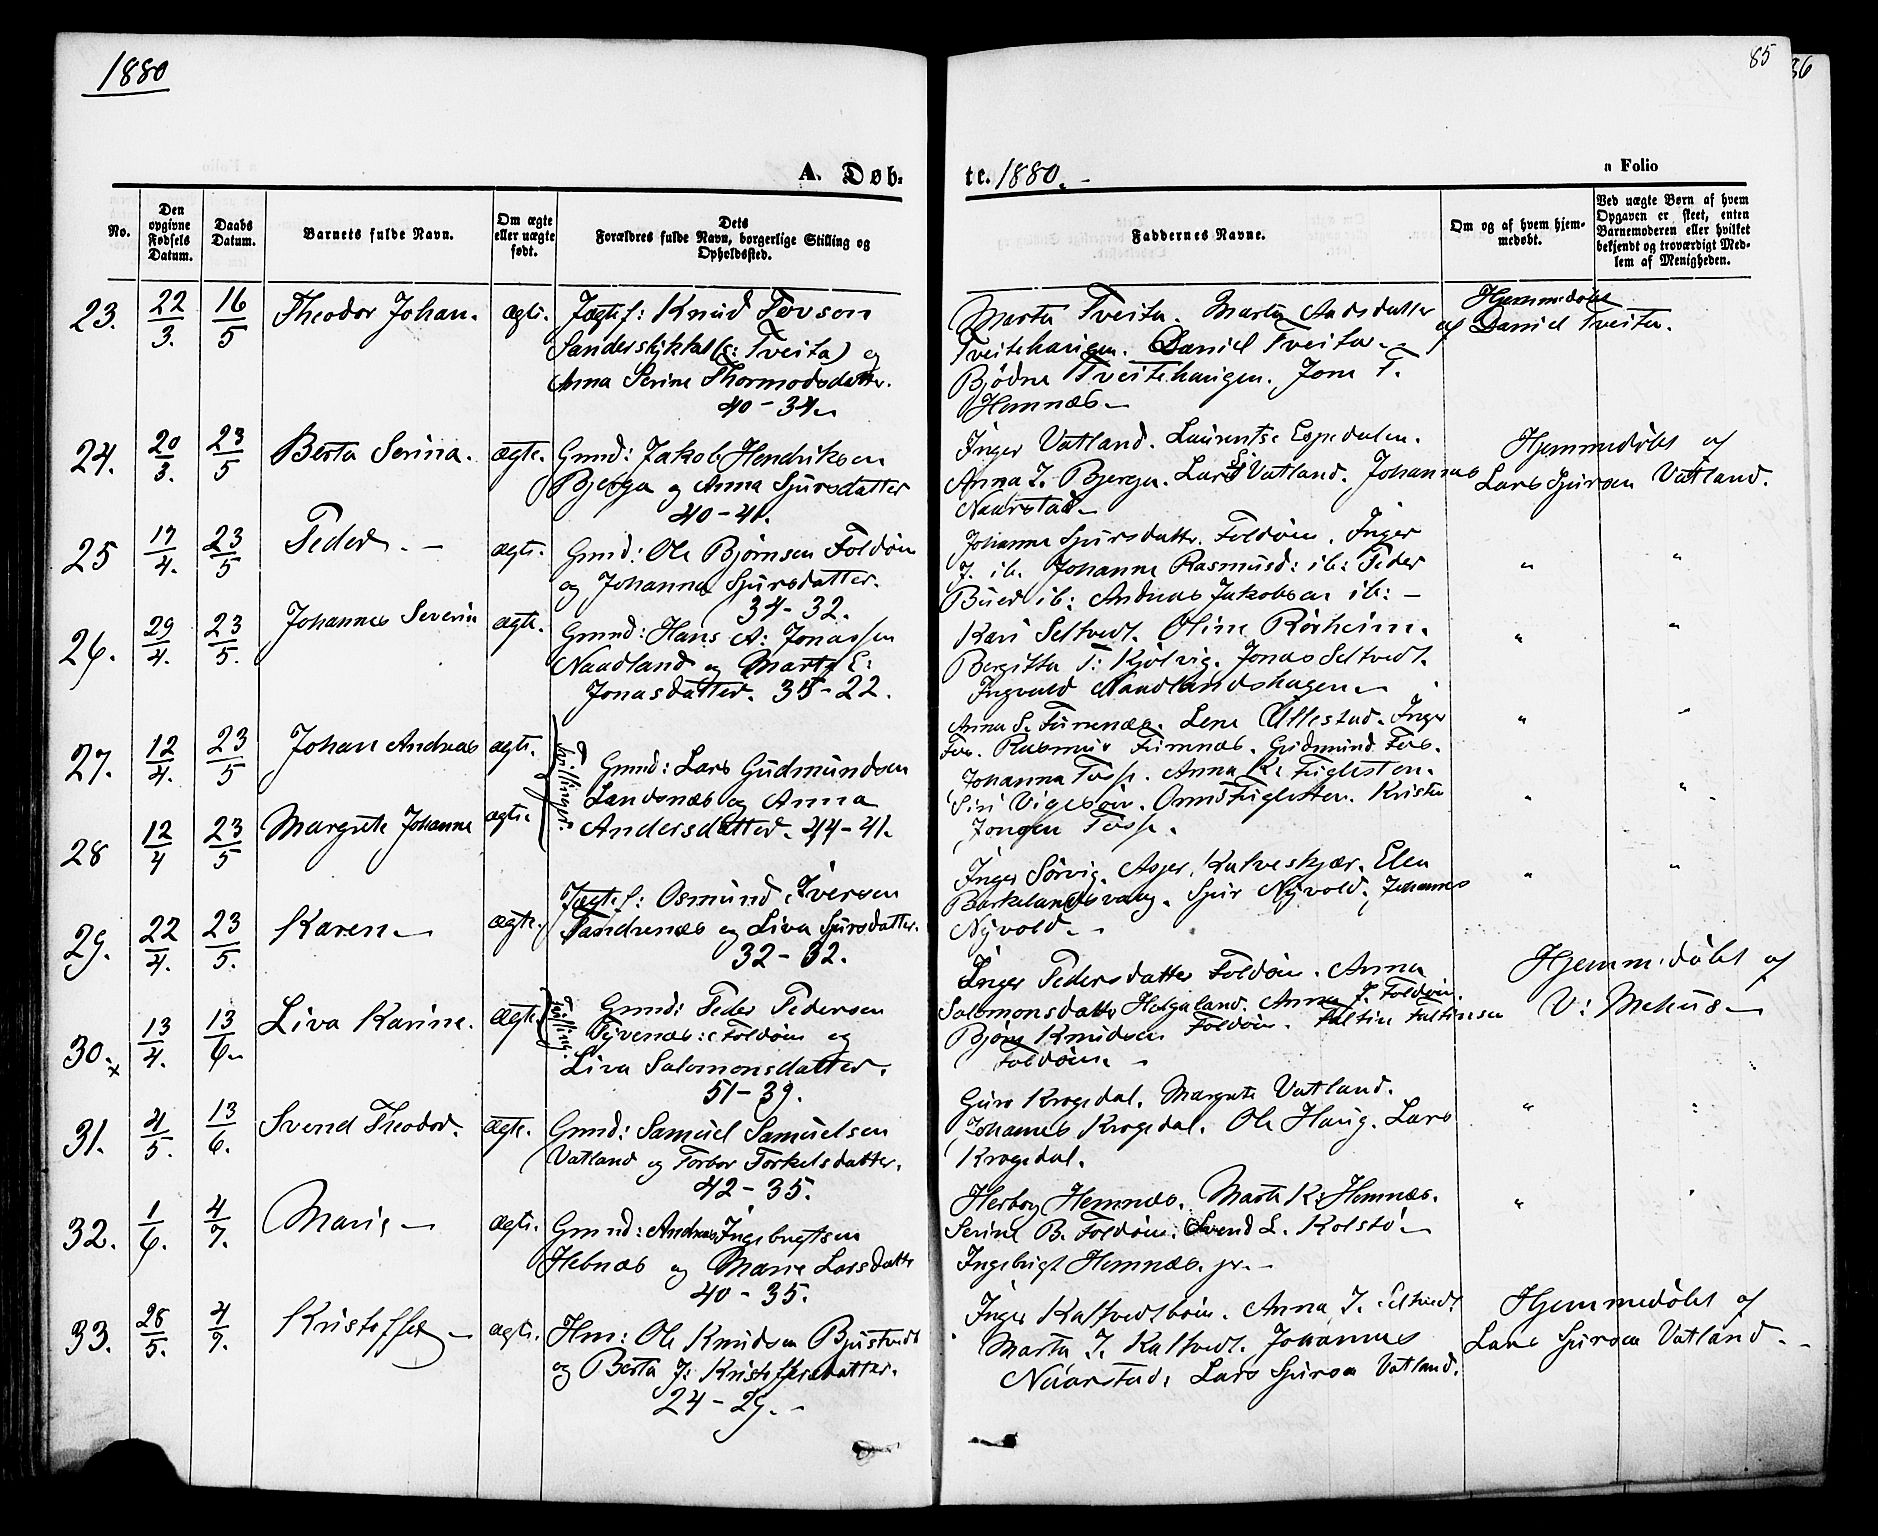 1880
85
36
A. Døb-
te. 1880. -
a Folio
No.
Den opgivne Fødsels Datum.
Daabs Datum.
Barnets fulde Navn.
Om ægte eller uægte født.
Dets
Forældres fulde Navn, borgerlige Stilling og
Opholdssted.
Faddernes Navne.
Om og af hvem hjem-
medøbt.
Ved uægte Børn af hvem
Opgaven er skeet, enten
Barnemoderen eller hvilket
bekjendt og troværdigt Med-
lem af Menigheden.
23. 22/3. 16/5 Theodor Johan. ægte. Jægtef: Knud Tovson
(s: Tveita) og
Anna Serine Thormodsdatter.
40 - 34.
Marta Tveita. Marta Aadsdatter
Tveitehaugen. Daniel Tveita.
Bjødne Tveitehaugen. Jone T.
Hemnæs -
Hjemmedøbt
af Daniel Tveita.
24. 20/3. 23/5 Berta Serina. ægte. Gmd: Jakob Hendriksen
Bjerga og Anna Sjursdatter
40 - 41.
Inger Vatland. Laurentse Espedalen.
Anna J. Bjerga. Lars Vatland. Johannes
Naarstad -
Hjemmedøbt af
Lars Sjursen Vatland.
25 17/4. 23/5 Peder. - ægte. Gmd: Ole Bjørnsen Foldøen
og Johanna Sjursdatter.
34 - 32.
Johanna Sjursdatter Foldøen. Inger
J. ib. Johanna Rasmusd: ib: Peder
Bued ib: Andreas Jakobsen ib: -
" "
26. 29/4. 23/5. Johannes Severin ægte. Gmd: Hans A: Jonassen
Naadland og Marta E:
Jonasdatter. 35 - 22.
Kari Seltvedt. Oline Rørheim.
Bergitta T: Kjølvig. Jonas Seltvedt.
Ingvald Naadlandshagen -
" "
27. 12/4. 23/5 Johan Andreas ægte. Tvillinger.
Gmd: Lars Gudmundsen
Landsnæs og Anna
Andersdatter. 44 - 41.
Anna S. Finnnæs. Lene Ullestad. Inger
Fos. Rasmus Finnnæs. Gudmund Fos.
" "
28 12/4 23/5 Margrete Johanne ægte.
Johanna Foss. Anna K. Fuglesten.
Siri Vigesøen. Omund Fuglesten. Kristen
Foss.
" "
29. 22/4. 23/5. Karen - ægte. Jægtef: Osmund Iversen
Sandvenæs og Liva Sjursdatter.
32 - 32.
Inger Sørvig. Asper. Kalveskjær. Elen
Barkelandsvaag. Sjur Nyvold. Johannes
Nyvold. -
" "
30. x 13/4. 13/6 Liva Karine. ægte. Tvilling.
Gmd: Peder Pedersen
: Foldøen og
Liva Salomonsdatter.
51 - 39.
Inger Pedersdatter Foldøen. Anna
Salomonsdatter Helgaland. Anna J. Foldøen.
Bjørn Knudsen Foldøen. Faltin Faltinsen
Foldøen. -
Hjemmedøbt af
V: Mehus -
31. 4/5. 13/6. Svend Theodor. ægte. Gmd: Samuel Samuelsen
Vatland og Torbor Torkelsdatter.
42 - 35.
Guro Krogedal. Margrete Vatland.
Johannes Krogedal. Ole Haug. Lars
Krogedal.
" "
32. 1/6. 4/7. Marie - ægte. Gmd: Andreas Ingebregtsen
Hebnæs og Marie Larsdatter
40 - 35.
Herborg Hemnæs. Marta K: Hemnæs.
Serine B. Foldøen. Svend L. Kolstø -
Ingebrigt Hemnæs jr. -
" "
33. 28/5. 4/7. Kristoffer - ægte. Hm: Ole Knudsen Bjustvedt
og Berta J: Kristoffersdatter.
24 - 29. -
Inger Kaltvedtbøen. Anna J. Seltvedt
Marta J. Kaltvedt. Johannes
Naarstad. Lars Sjursen Vatland.
Hjemmedøbt af
Lars Sjursen Vatland. -